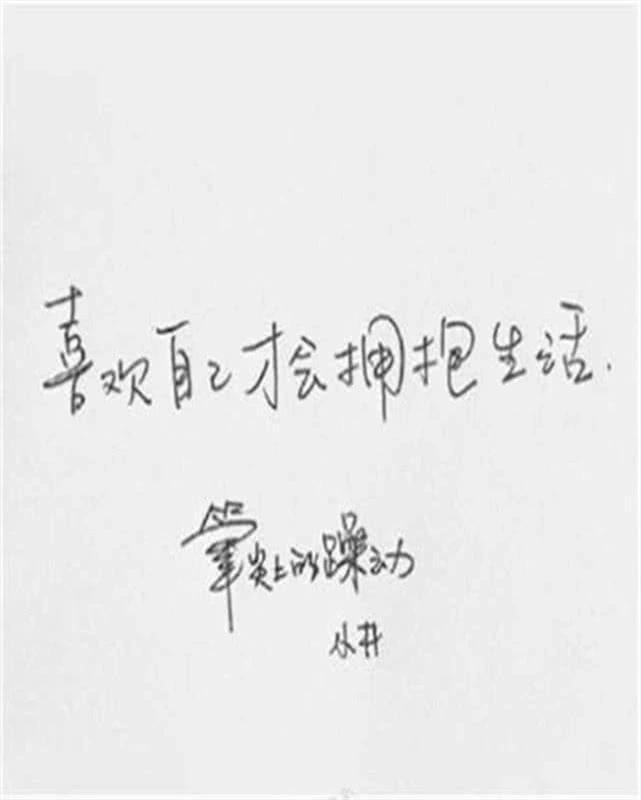 喜欢自己才会拥抱生活.
笔尖上的躁动
从井